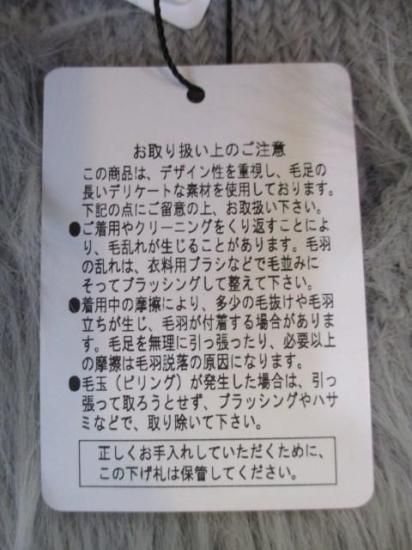 お取り扱い上のご注意
この商品は、デザイン性を重視し、毛足の
長いデリケートな素材を使用しております。
下記の点にご留意の上、お取扱い下さい。
●ご着用やクリーニングをくり返すことによ
り、毛乱れが生じることがあります。毛羽
の乱れは、衣料用ブラシなどで毛並みに
そってブラッシングして整えて下さい。
●着用中の摩擦により、多少の毛抜けや毛羽
立ちが生じ、毛羽が付着する場合がありま
す。毛足を無理に引っ張ったり、必要以上
の摩擦は毛羽脱落の原因になります。
●毛玉（ピリング）が発生した場合は、引っ
張って取ろうとせず、ブラッシングやハサ
ミなどで、取り除いて下さい。
正しくお手入れしていただくために、
この下げ札は保管してください。